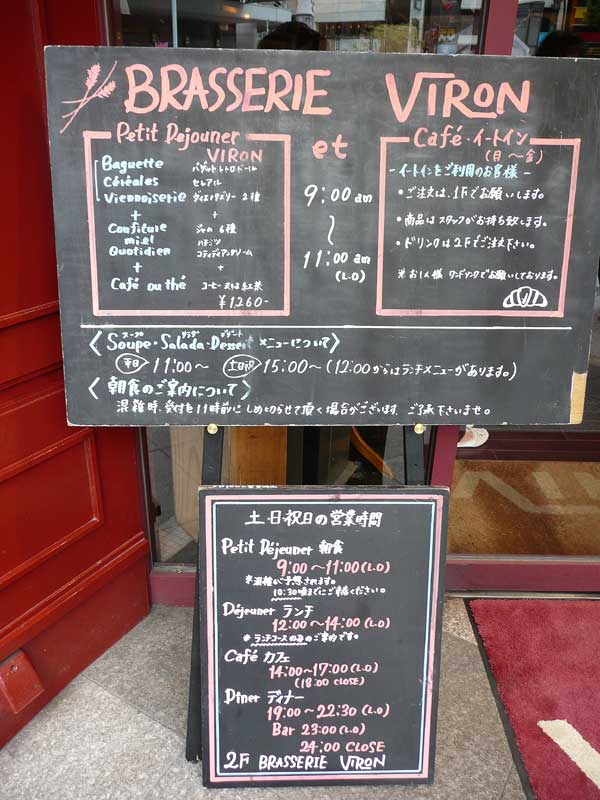 BRASSERIE VIRON
et
Petit Dejouner
VIRON
Baguette バゲットレトロドール
Céréales セレアル
Viennoiserie ヴィエノワズリー 2種
+ +
Confiture ジャム 6種
miel ハチミツ
Quotidien コティディアンクリーム
+ +
Café ou thé コーヒー又は紅茶
¥1260-
9:00 am
〜
11:00 am
(L.O)
Café・イートイン
(月〜金)
-イートインをご利用のお客様-
・ご注文は、1Fでお願いします。
・商品はスタッフがお持ち致します。
・ドリンクは2Fでご注文下さい。
※お1人様 ワンドリンクでお願いしております。
スープ サラダ デザート
〈Soupe・Salada・Dessert メニューについて〉
平日 11:00〜 土日祝 15:00〜(12:00からはランチメニューがあります。)
〈朝食のご案内について〉
混雑時、受付を11時前にしめ切らせて頂く場合がございます ご了承下さいませ。
土・日・祝日の営業時間
Petit Déjeuner 朝食
9:00〜11:00(L.O)
※混雑が予想されます。
10:30頃までにご来店ください。
Déjeuner ランチ
12:00〜14:00(L.O)
※ランチコースのみのご予約です。
Café カフェ
14:00〜17:00(L.O)
(18:00 CLOSE)
Dîner ディナー
19:00〜22:30(L.O)
Bar 23:00(L.O)
24:00 CLOSE
2F BRASSERIE VIRON